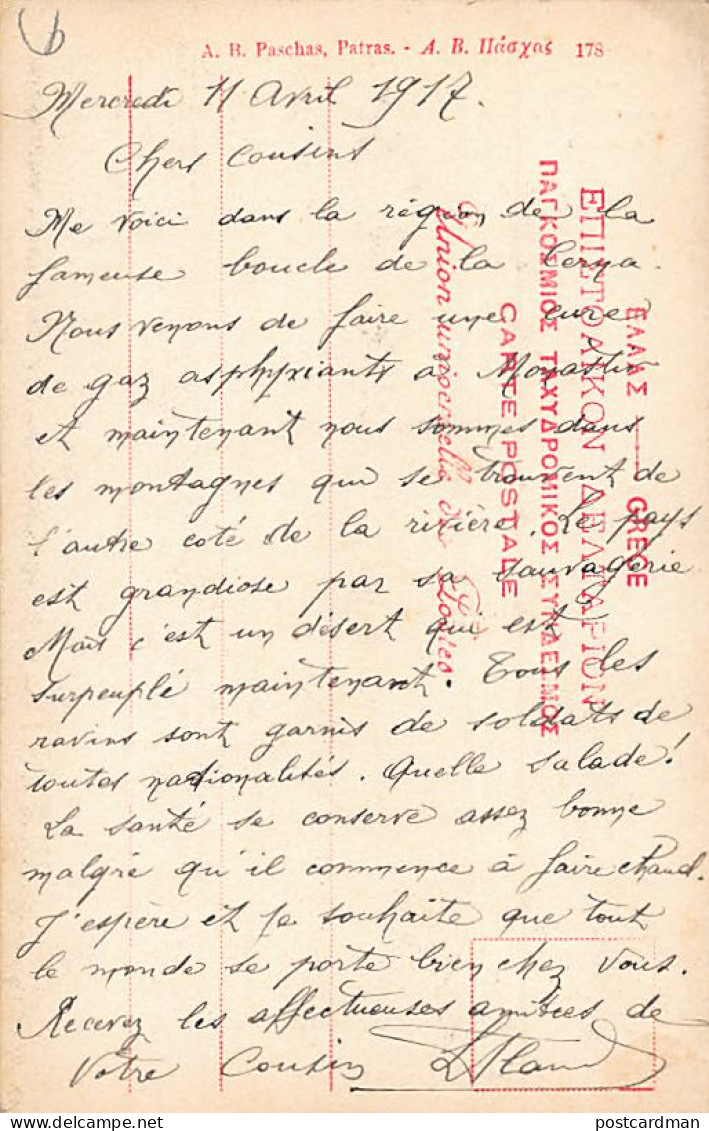 A. B. Paschas, Patras. - Α. Β. Πάσχας 178
Mercredi 11 Avril 1917.
Chers Cousins
Me voici dans la région de la
fameuse boucle de la Cerna.
Nous venons de faire une cure
de gaz asphyxiants à Monastir
et maintenant nous sommes dans
les montagnes qui se trouvent de
l'autre coté de la rivière. Le pays
est grandiose par sa sauvagerie
Mais c'est un désert qui est
surpeuplé maintenant. Tous les
ravins sont garnis de soldats de
toutes nationalités. Quelle salade!
La santé se conserve assez bonne
malgré qu'il commence à faire chaud.
J'espère et je souhaite que tout
le monde se porte bien chez vous.
Recevez les affectueuses amitiés de
Votre Cousin
ΕΛΛΑΣ — GRÈCE
ΕΠΙΣΤΟΛΙΚΟΝ ΔΕΛΤΑΡΙΟΝ
ΠΑΓΚΟΣΜΙΟΣ ΤΑΧΥΔΡΟΜΙΚΟΣ ΣΥΝΔΕΣΜΟΣ
CARTE POSTALE
Union universelle des Postes
postcardman